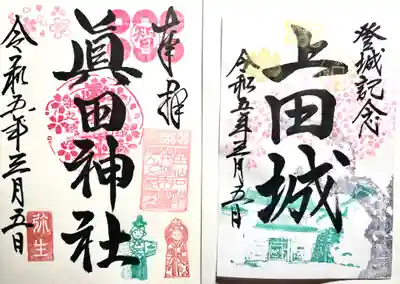 奉拝
暦
眞田神社
令和五年三月五日
弥生
登城記念
上田城
令和五年三月五日